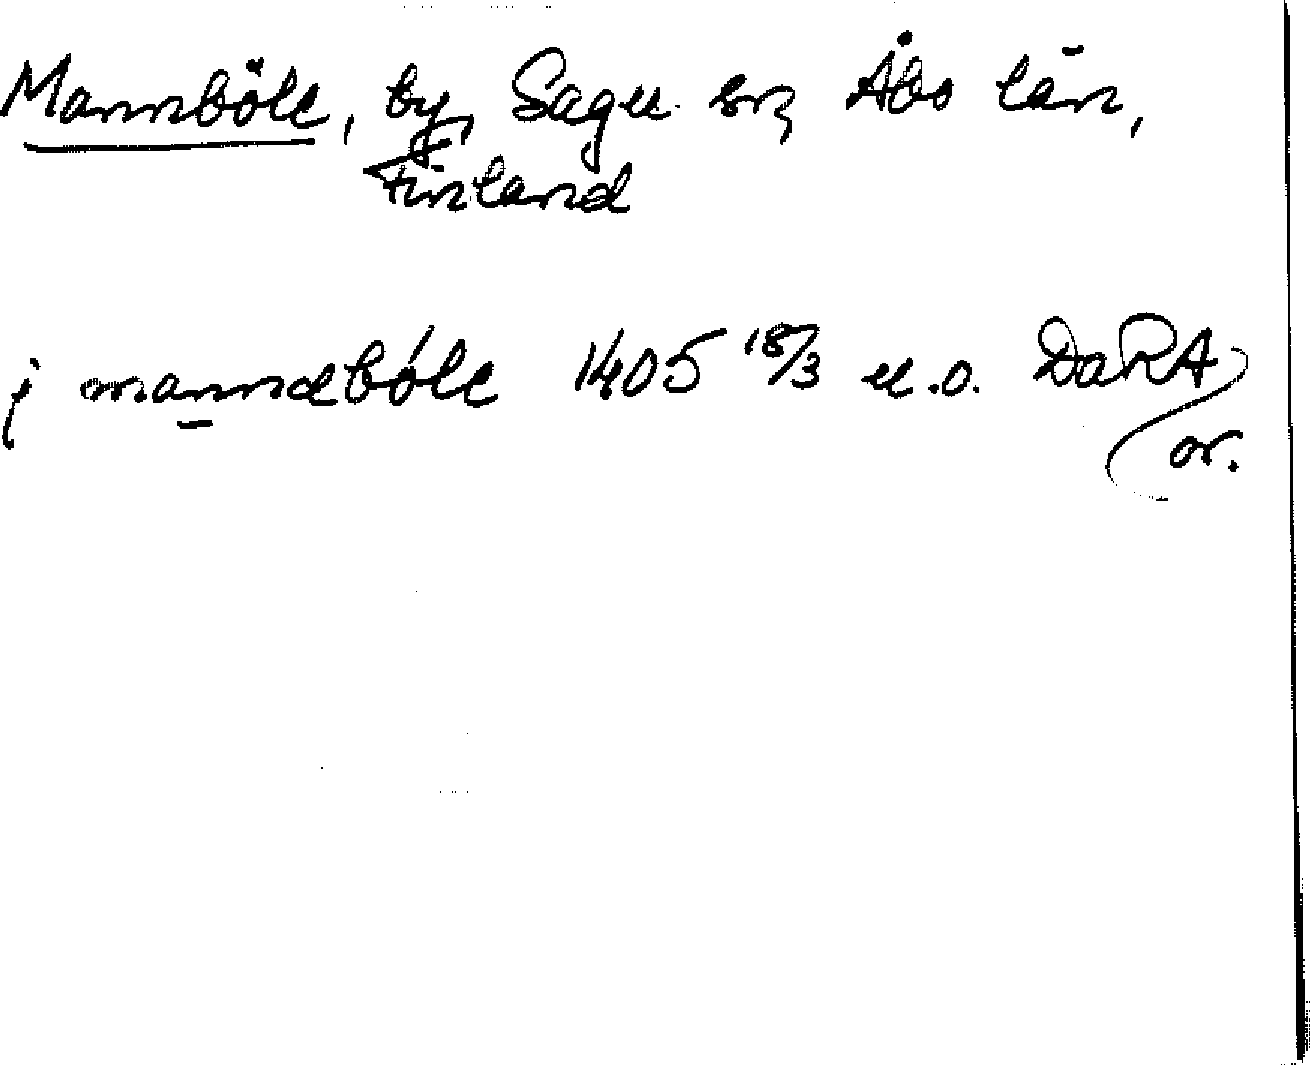 Mannböle, by, Sagu sn, Åbo län,
Finland
j mannæbóle 1405 18/3 u.o. DaRA
or.